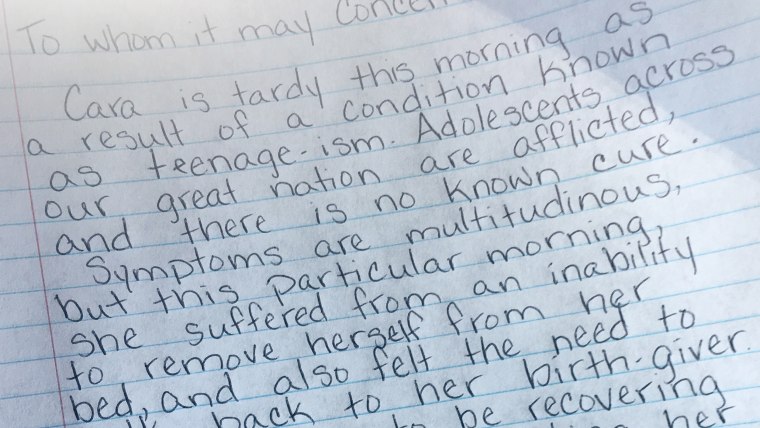 To whom it may Concer
Cara is tardy this morning as
a result of a condition known
as teenage-ism. Adolescents across
our great nation are afflicted,
and there is no known cure.
Symptoms are multitudinous,
but this particular morning,
she suffered from an inability
to remove herself from her
bed, and also felt the need to
back to her birth-giver.
be recovering
her